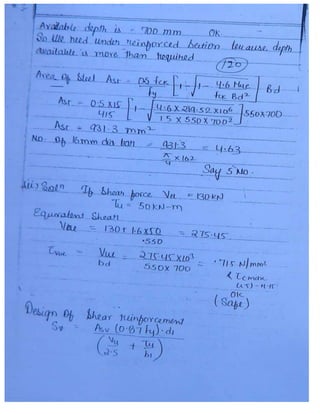 Available depth is = 700 mm OK
So we need under reinforced Section because depth
available is more than required
(120)
Area of Steel Ast = 0.5 fck / fy [1 - √1 - 4.6 Mue / fck Bd²] Bd
Ast = 0.5 x 15 / 415 [1 - √4.6 x 219.52 x 10⁶ / 15 x 550 x 700²] 550x700
Ast = 931.3 mm²
No. of 16mm dia bar = 931.3 / π/4 x 16² = 4.63
Say 5 No.
iii) Solⁿ If Shear force Vu = 130 kN
Tu = 50 KN-m
Equivalent Shear
Vue = 130 + 1.6 x 50 / .550 = 275.45
τve = Vue / bd = 275.45 x 10³ / 550 x 700 = .715 N/mm²
< τc max
OK
(Safe)
Design of Shear reinforcement
Sv = Asv (0.87 fy) . d1 / (Vu / 2.5 + Tu / b1)